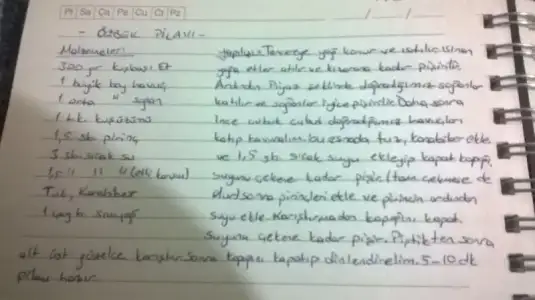 Pt Sa Ça Pe Cu Ct Pz
/ /
- ÖZBEK PİLAVI -
Malzemeler: yapılışı: Tencereye yağ konur ve ısıtılır. Isınan
300 gr kuşbaşı Et yağa etler atılır ve kızarana kadar pişirilir.
1 büyük boy havuç Ardından Piyaz şeklinde doğradığımız soğanlar
1 orta " soğan katılır ve soğanlar iyice pişirilir. Daha sonra
1 tk. kuş üzümü İnce çubuk çubuk doğradığımız havuçları
1,5 sb. pirinç katıp kavuralım. bu esnada tuz, karabiber ekle
3 sb. sıcak su ve 1,5 sb. sıcak suyu ekleyip kapat kapağı,
1,5 " " " suyunu çekene kadar pişir. (tam çekmese de
Tuz, Karabiber olur) sonra pirinçleri ekle ve pirincin ardından
1 sıvıyağ suyu ekle. Karıştırmadan kapağını kapat.
Suyunu çekene kadar pişir. Piştikten sonra
alt üst güzelce karıştır. Sonra kapağı kapatıp dinlendirelim. 5-10 dk
pilav hazır.